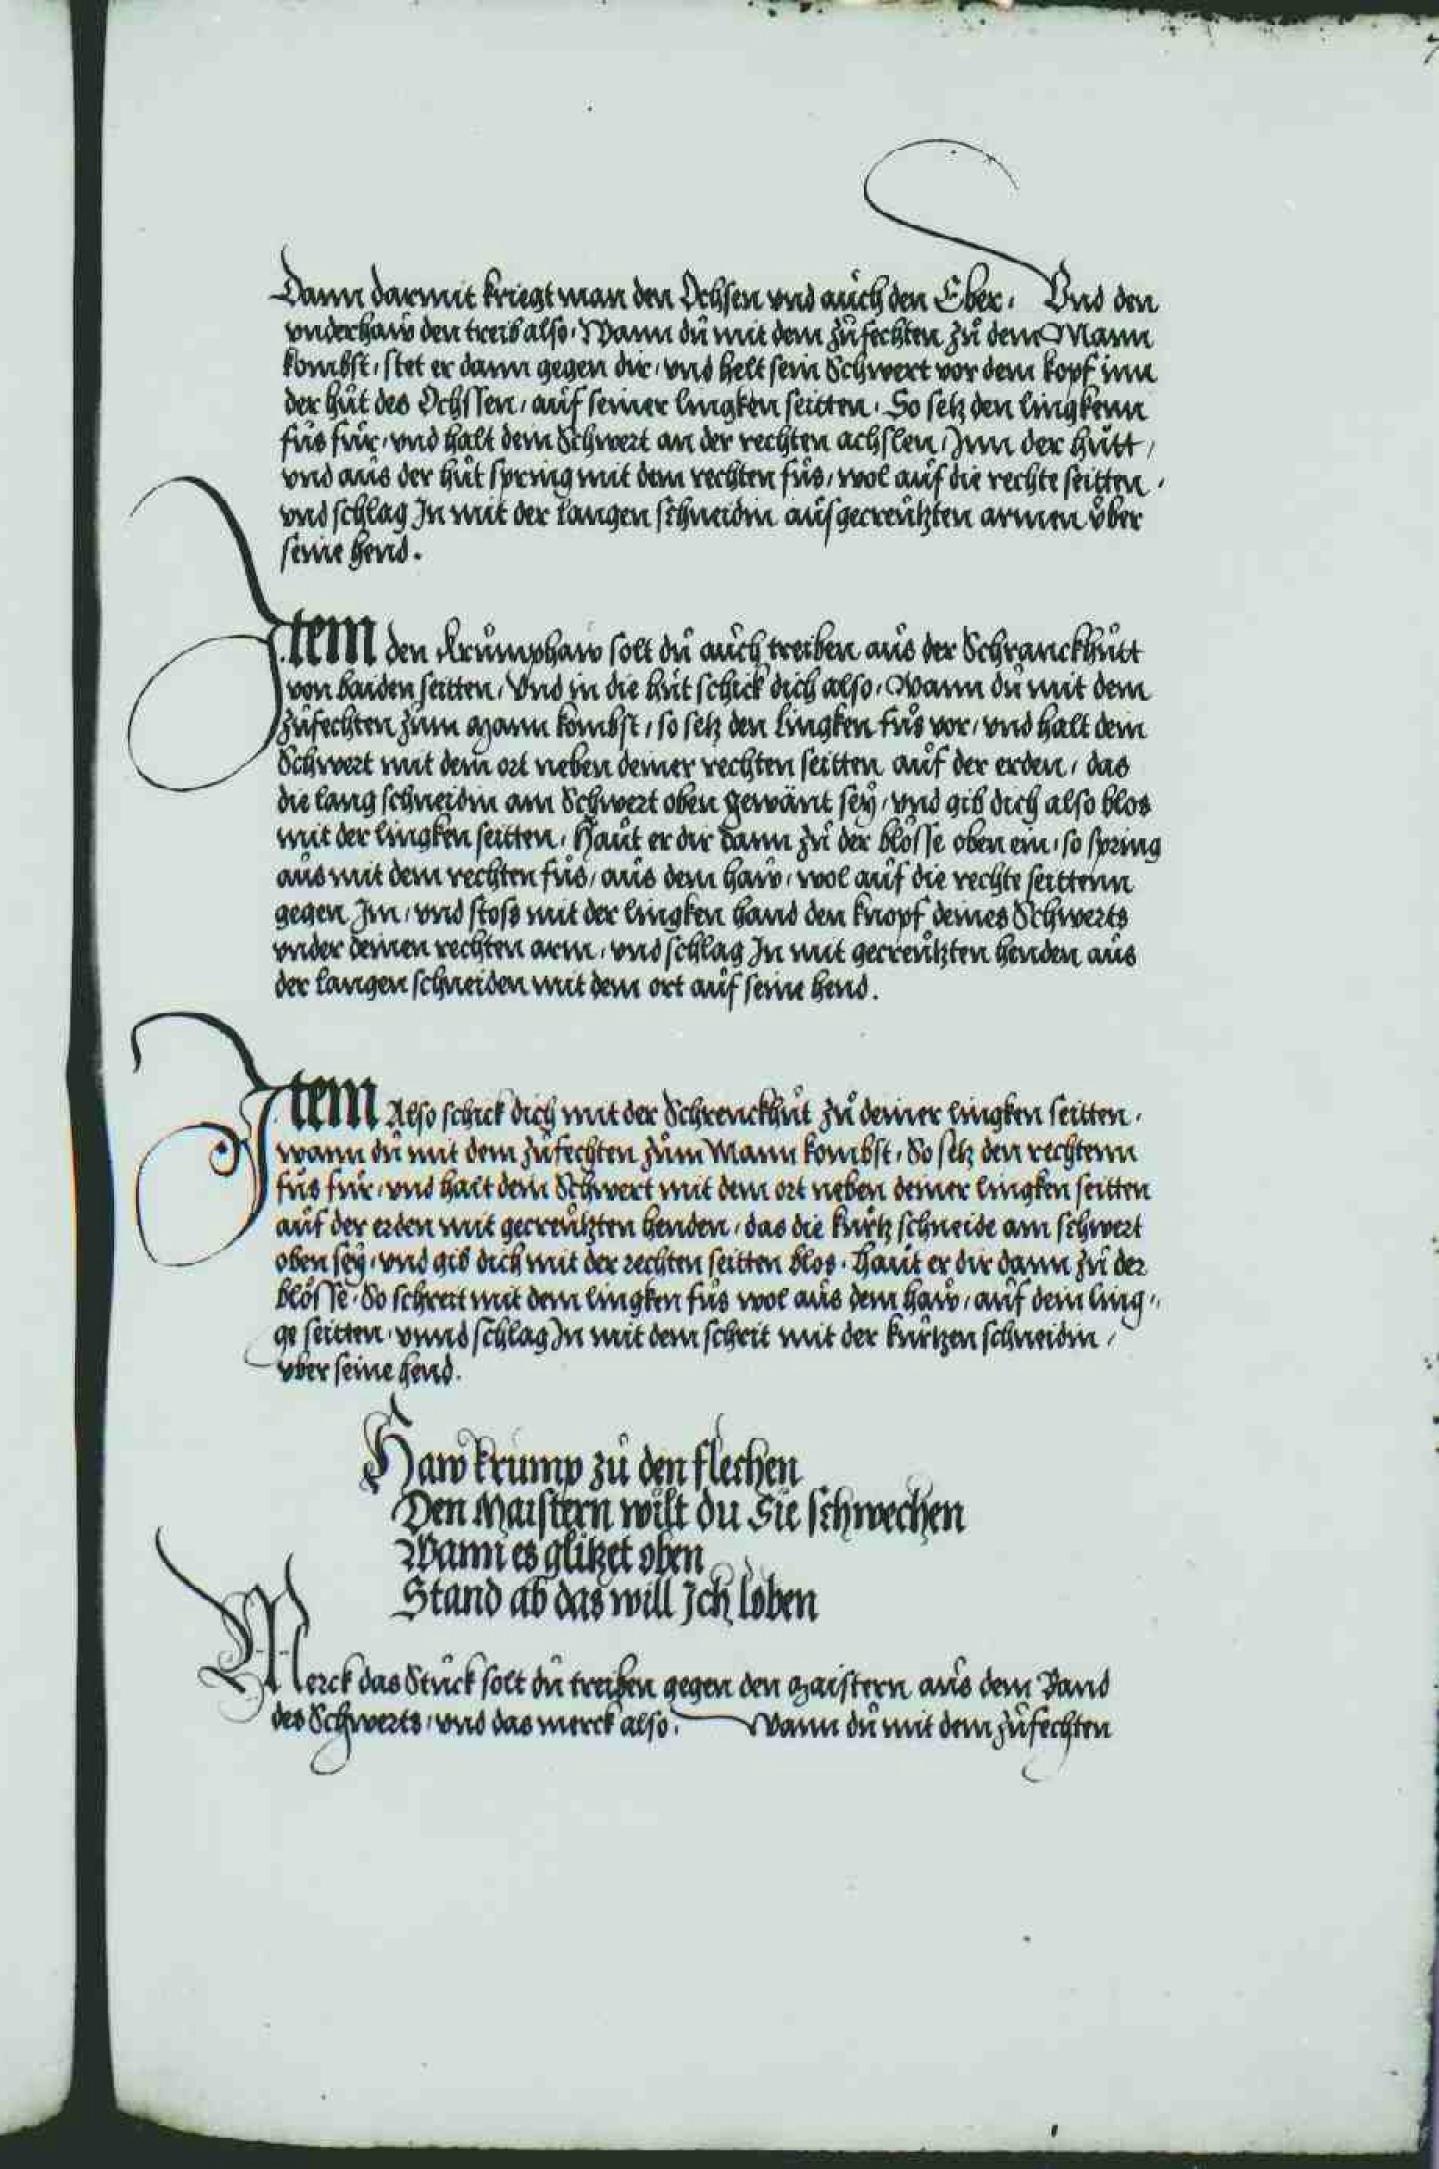 Dann darmit kriegt man den Ochsen vnd auch den Eber. Vnd den
vnderhaw den treib also, Wann dů mit dem zůfechten zů dem Mann
kombst, stet er dann gegen dir, vnd helt sein Schwert vor dem kopf inn
der hůt des Ochssen, aůf seiner lingken seitten, So setz den lingkenn
fůs fůr, vnd halt dein Schwert an der rechten achslen, Inn der hůtt,
vnd aůs der hůt spring mit dem rechten fůs, wol aůf die rechte seitten,
vnd schlag In mit der langen schneidin aůs gecreůtzten armen vber
seine hend.
Item den krůmphaw solt dů aůch treiben aůs der Schranckhůtt
von baiden seitten, Vnd in die hůt schick dich also, Wann dů mit dem
Zůfechten zům Mann kombst, so setz den lingken fůs vor, vnd halt dein
Schwert mit dem ort neben deiner rechten seitten auf der erden, das
die lang schneidin am Schwert oben gewänt seÿ, vnd gib dich also blos
mit der lingken seitten, Haůt er dir dann zů der blösse oben ein, so spring
aůs mit dem rechten fůs, aůs dem haw, wol aůf die rechte seittenn
gegen Im, vnd stoss mit der lingken hand den knopf deines Schwerts
vnder deinen rechten arm, vnd schlag In mit gecreůtzten henden aůs
der langen schneiden mit dem ort aůf seine hend.
Item Also schick dich mit der Schrenckhůt zů deiner lingken seitten,
wann dů mit dem zůfechten zům Mann kombst, So setz den rechtenn
fůs fůr, vnd halt dein Schwert mit dem ort neben deiner lingken seitten
aůf der erden mit gecreůtzten henden, das die kůrtz schneide am schwert
oben seÿ, vnd gib dich mit der rechten seitten blos, Haůt er dir dann zů der
blösse, So schreit mit dem lingken fůs wol aůs dem haw, aůf dein ling,,
ge seitten, vnnd schlag In mit dem schrit mit der kůrtzen schneidin,
vber seine hend.
Haw krump zů den flechen
Den Maistern wilt du Sie schwechen
Wann es glitzet oben
Stand ab das will Ich loben
Merck das Stůck solt dů treiben gegen den Maistern aůs dem Band
des Schwerts, vnd das merck also. Wann dů mit dem zůfechten